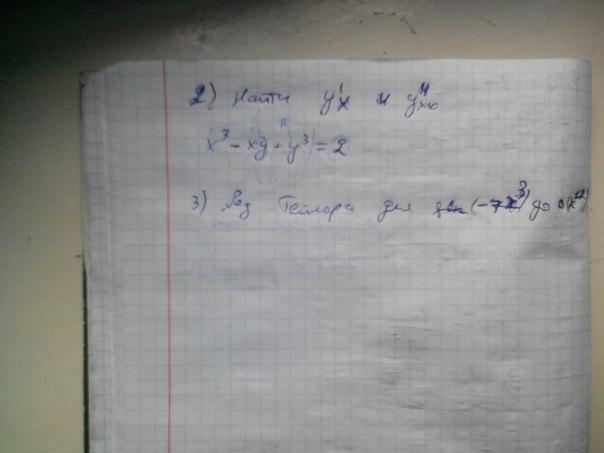 2) Найти y'x и y''xx
x³ - xy + y³ = 2
3) Ряд Тейлора для (-7x³) до